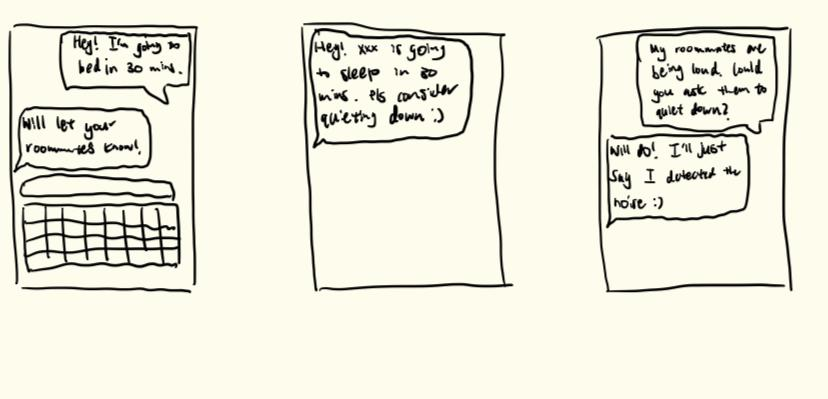 Hey! I'm going to
bed in 30 mins.
Will let your
roommates know!
Hey! xxx is going
to sleep in 30
mins. Pls consider
quieting down :)
My roommates are
being loud. Could
you ask them to
quiet down?
Will do! I'll just
say I detected the
noise :)